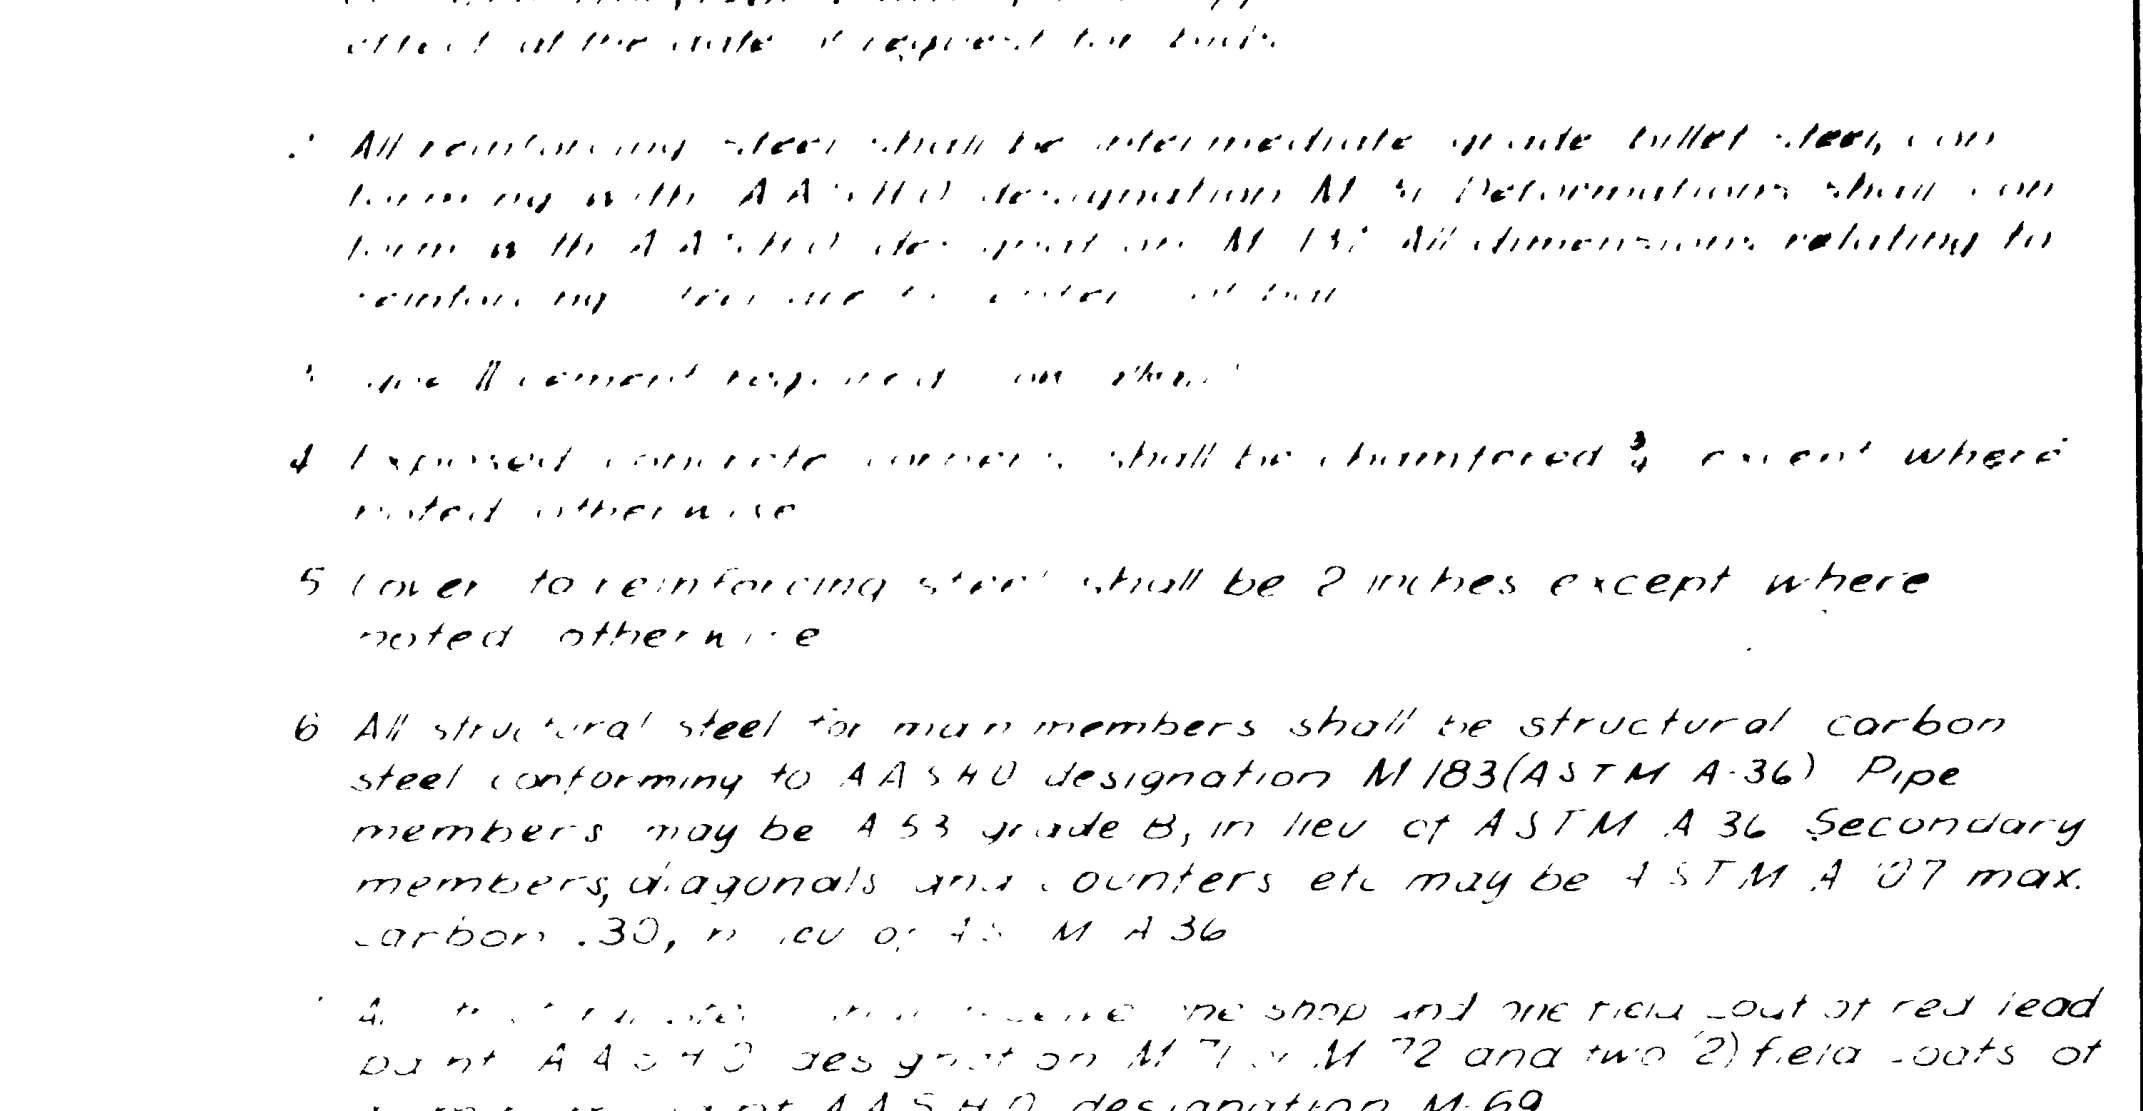 effect at the date of request for bids.
All reinforcing steel shall be intermediate grade billet steel, con
forming with AASHO designation M Deformations shall con
form with AASHO designation M 137 All dimensions relating to
reinforcing steel are to center of bar
cement required on
4 Exposed concrete corners shall be chamfered 3/4 except where
noted otherwise
5 Cover to reinforcing steel shall be 2 inches except where
noted otherwise
6 All structural steel for main members shall be structural carbon
steel conforming to AASHO designation M 183 (ASTM A-36) Pipe
members may be A 53 grade B, in lieu of ASTM A 36 Secondary
members, diagonals and counters etc may be ASTM A 07 max.
carbon .30, in lieu of ASTM A 36
All shall receive one shop and one field coat of red lead
paint AASHO designation M 71 or M 72 and two (2) field coats of
AASHO designation M-69